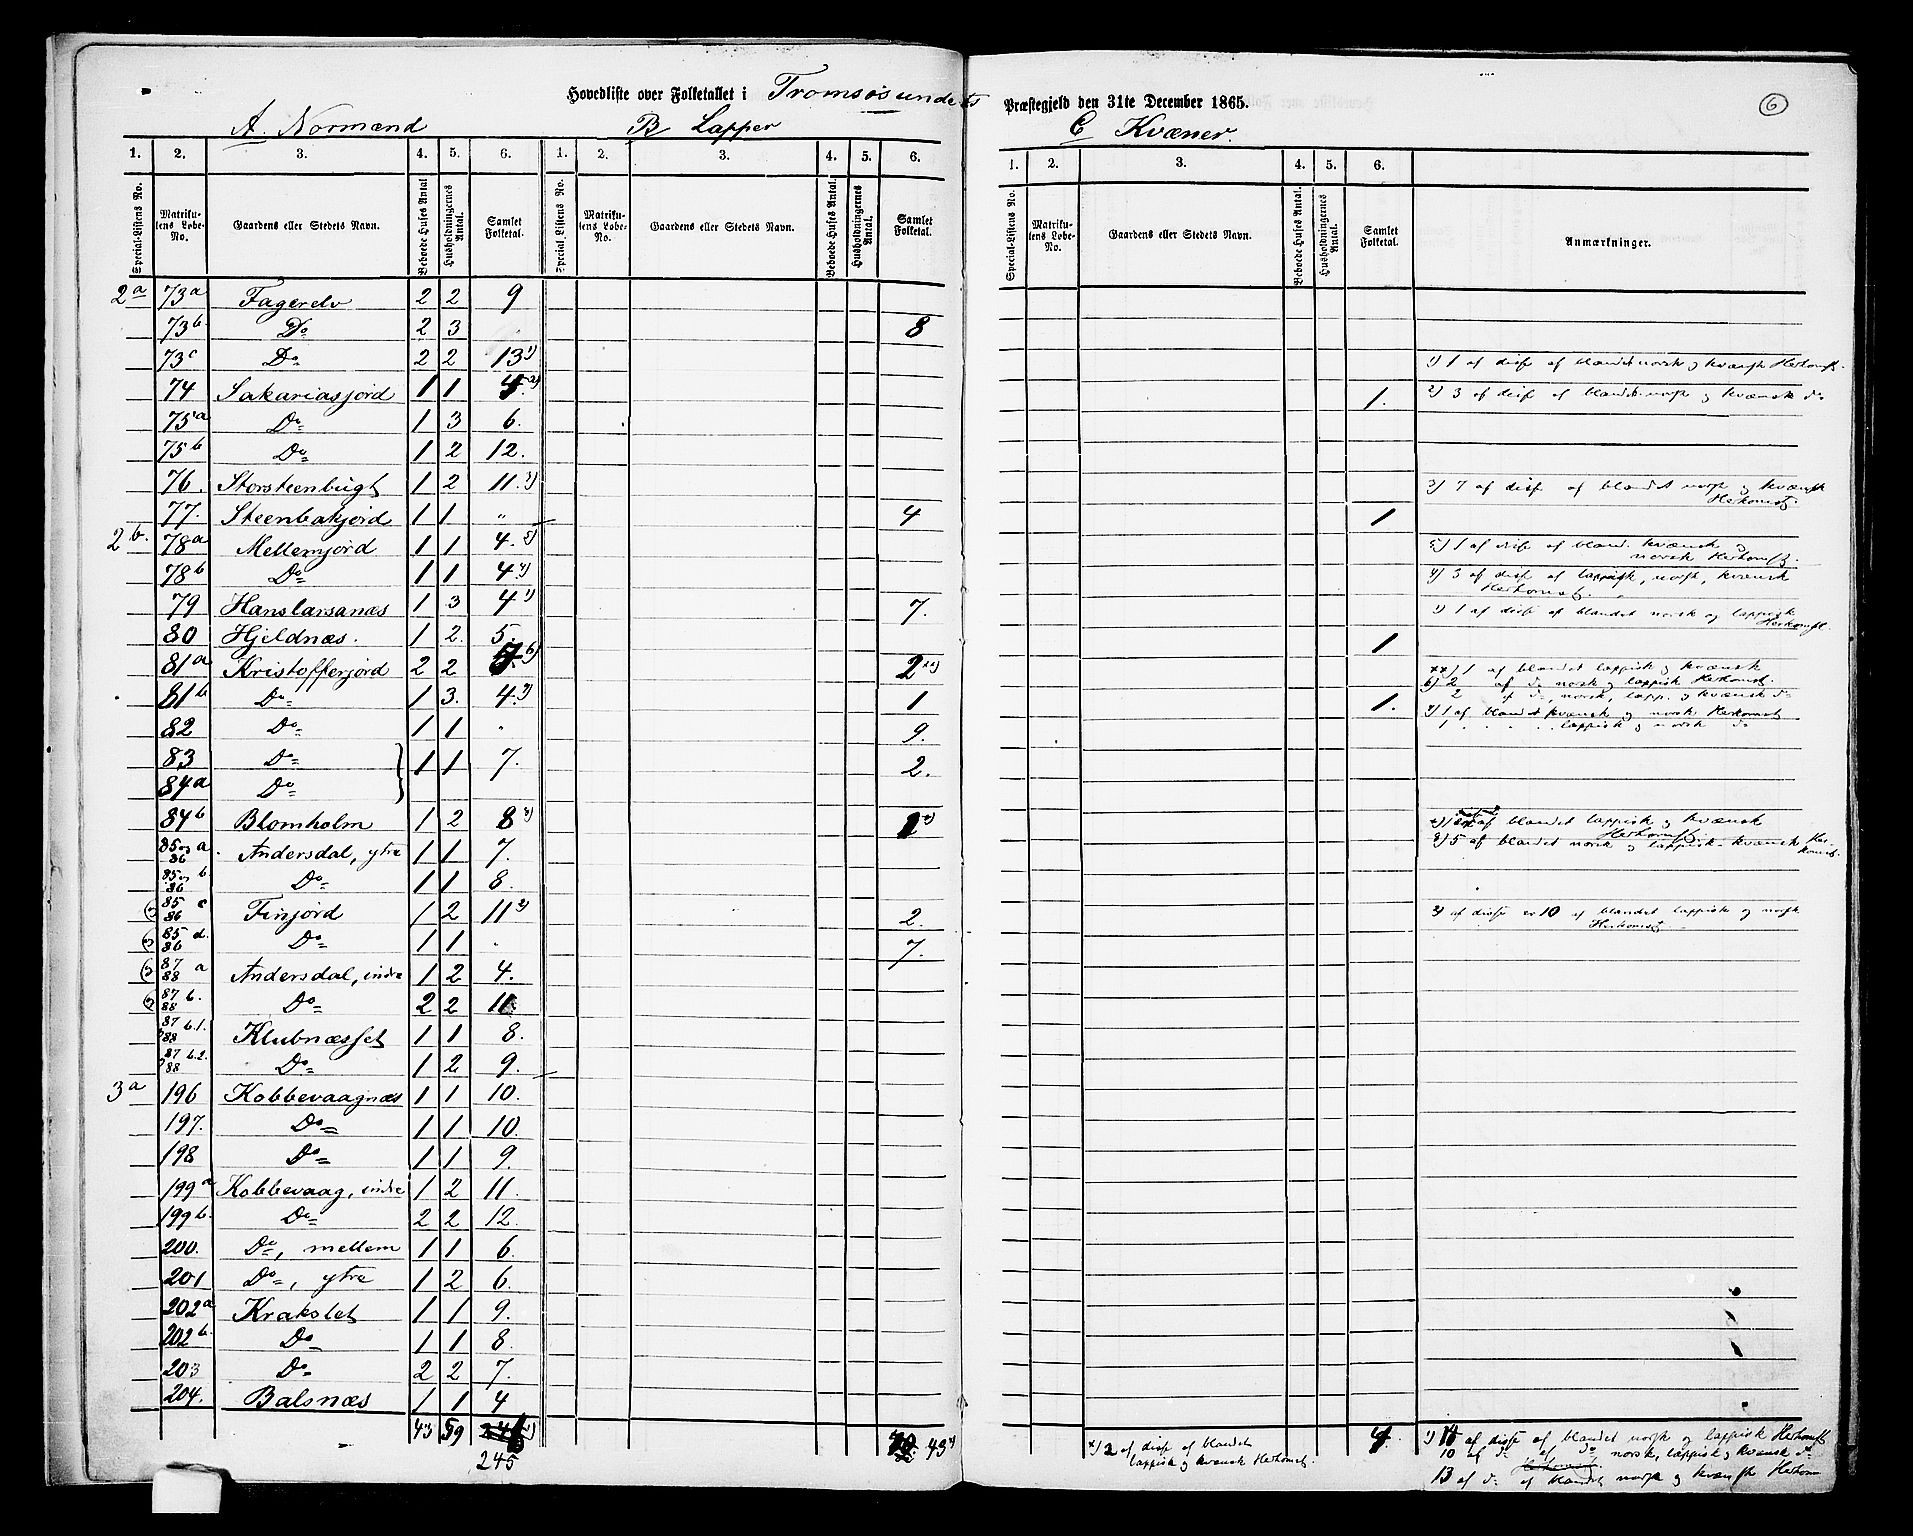 Hovedliste over Folketallet i Tromsøsundets Præstegjeld den 31te December 1865.
6
A. Normænd B Lapper C Kvæner.
1. 2. 3. 4. 5. 6. 1. 2. 3. 4. 5. 6. 1. 2. 3. 4. 5. 6.
Special-Listens No. Matrikulens Løbe-No. Gaardens eller Stedets Navn. Beboede Huses Antal Husholdningernes Antal. Samlet Folketal. Special-Listens No. Matrikulens Løbe-No. Gaardens eller Stedets Navn. Beboede Huses Antal. Husholdningernes Antal. Samlet Folketal. Special-Listens No. Matrikulens Løbe-No. Gaardens eller Stedets Navn. Beboede Huses Antal. Husholdningernes Antal. Samlet Folketal. Anmærkninger.
2a 73a Fagerelv 2 2 9
73b Do 2 3 8
73c Do 2 2 13 1) 1) 1 af disse af blandet norsk og kvænsk Herkomst.
74 Sakariasjord 1 1 2) 1. 2) 3 af disse af blandet norsk og kvænsk do
75a Do 1 3 6.
75b Do 1 2 12.
76. Storsteenbugt 1 2 11. 3) 3) 7 af disse af blandet norsk og kvænsk Herkomst.
77. Steenbakjord 1 1 " 4 1
2b. 78a Mellemjord 1 1 4. 5) 5) 1 af disse af bland. kvænsk og norsk Herkomst.
78b Do 1 1 4. 4) 4) 3 af disse af lappisk, norsk, kvænsk Herkomst.
79 Hanslarsanæs 1 3 4 1) 7. 1) 1 af disse af blandet norsk og lappisk Herkomst.
80 Hjeldnæs. 1 2. 5. 1
81a Kristofferjord 2 2 6) 2 xx) xx) 1 af blandet lappisk og kvænsk
6) 2 af do norsk og lappisk Herkomst.
2 af do, norsk, lapp. og kvænsk do
81b Do 1 3. 4. 7) 1 1. 7) 1 af blandet kvænsk og norsk Herkomst
1 " " lappisk og norsk do
82 Do 1 1 " 9.
83 Do 1 1 7. 2.
84a Do
84b Blomholm 1 2 8 8) x) 1 af blandet lappisk og kvænsk Herkomst.
8) 5 af blandet norsk og lappisk kvænsk Herkomst.
85 og 86 a Andersdal, ytre 1 1 7.
85 og 86 b Do 1 1 8.
85 86 c Finjord 1 2 11 2. af disse er 10 af blandet lappisk og norsk Herkomst.
85 86 d. Do 1 1 7.
87 88 a Andersdal, indre 1 2 4.
87 88 b. Do 2 2 11.
87 88 b.1. Klubnæsset 1 1 8.
87 88 b.2. Do 1 2 9.
3a 196 Kobbevaagnæs 1 1 10.
197. Do 1 1 10.
198 Do 1 1 9.
199a Kobbevaag, indre 1 2 11.
199b. Do 2 2 12.
200. Do, mellem 1 1 6.
201 Do, ytre 1 2 6.
202a Krakslet 1 1 9.
202b. Do 1 1 8.
203 Do 2 2 7.
204. Balsnæs 1 1 4
43 59 43 x) 4
245
x) 2 af disse af blandet lappisk og kvænsk Herkomst.
af disse af blandet norsk og lappisk Herkomst
10 af do af do norsk, lappisk og kvænsk do
13 af do af blandet norsk og kvænsk Herkomst